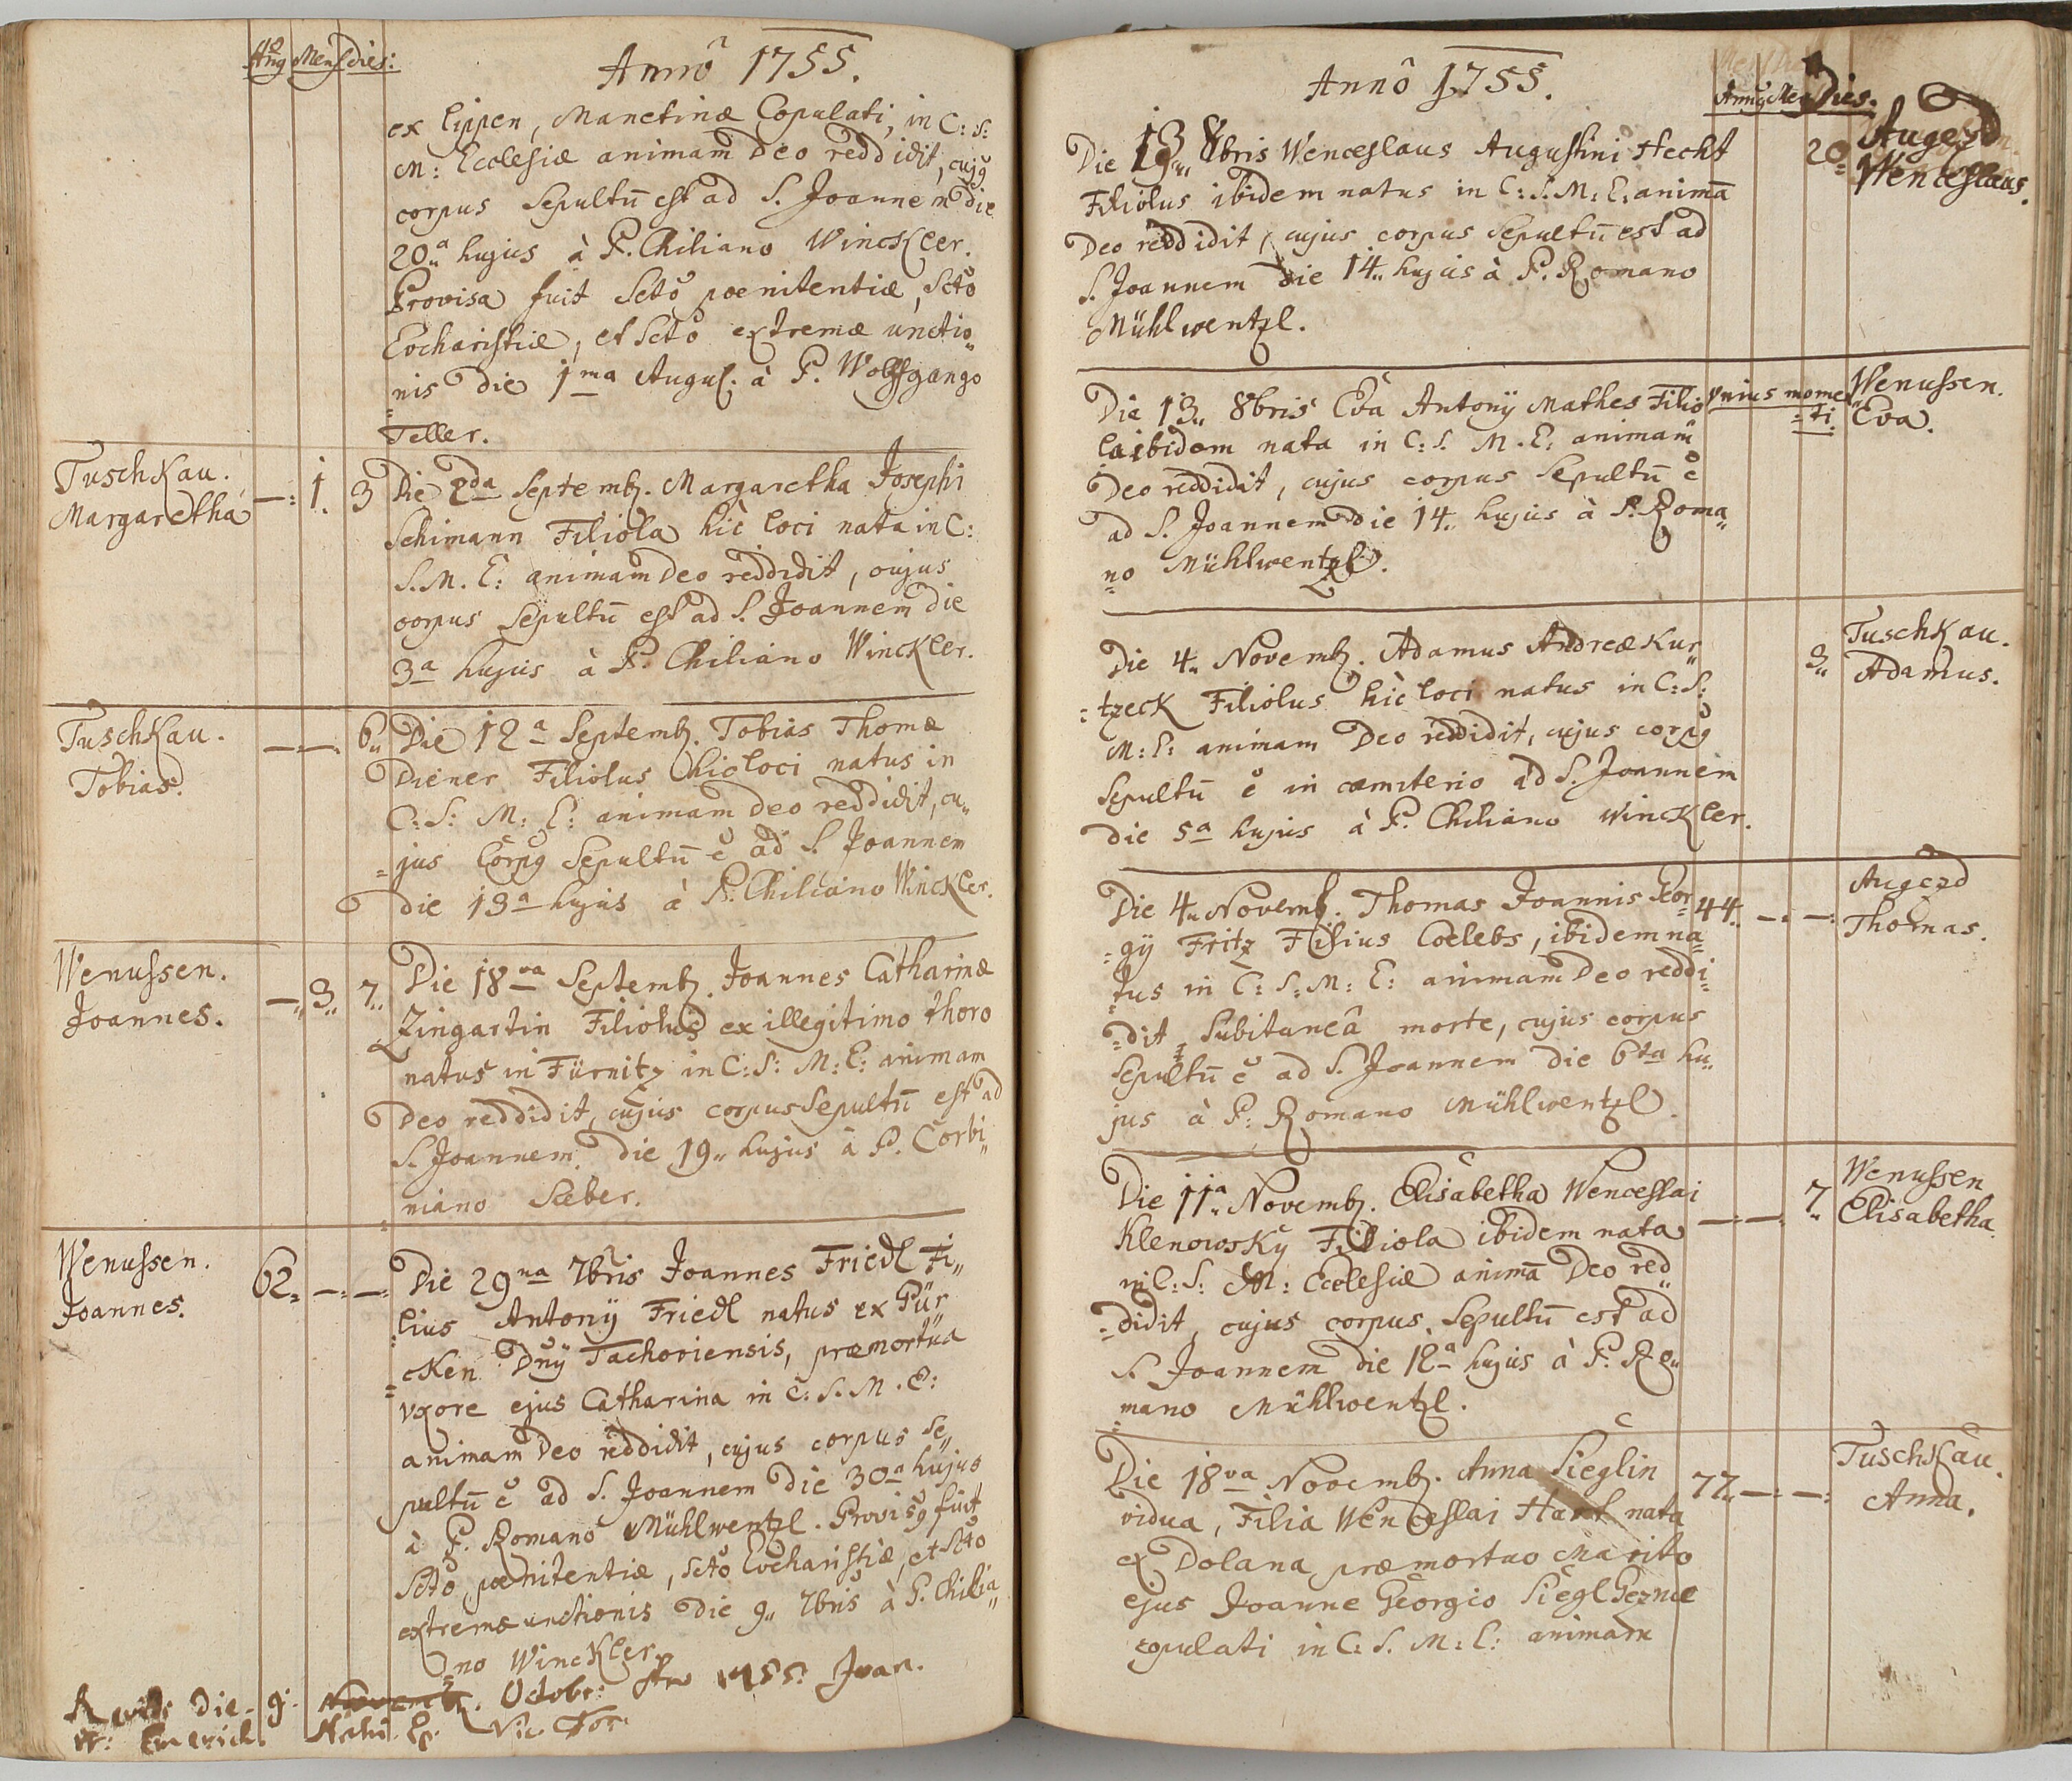 Anno 1755.
Ang Mens dies:
ex Lippen, Manetinæ Copulati, in C: S:
M: Ecclesiæ animam Deo reddidit, cujg
corpus Sepultū est ad S. Joannem die
20a hujus à P. Chiliano Winckler.
Provisa fuit Scto poenitentiæ, Scto
Eucharistiæ, et Scto extremæ unctio„
nis die 1ma Augus. à P. Wolffgango
Teller.
Tuschkau.
Margaretha
—: 1. 3
Die 2da Septemb. Margaretha Josephi
Schimann Filiola hic loci nata in C:
S. M. E: animam Deo reddidit, cujus
corpus Sepultū est ad S. Joannem die
3a hujus à P. Chiliano Winckler.
Tuschkau.
Tobias.
— — 6„
Die 12a Septemb. Tobias Thomæ
Diener Filiolus hic loci natus in
C: S: M: E: animam Deo reddidit, cu„
=jus Corpg Sepultū ē ad S. Joannem
die 13a hujus à P. Chiliano Winckler.
Wenussen.
Joannes.
—„ 3„ 7„
Die 18va Septemb. Joannes Catharinæ
Zingartin Filiolus ex illegitimo thoro
natus in Fürnitz in C: S: M: E: animam
Deo reddidit, cujus corpus Sepultū est ad
S. Joannem. die 19„ hujus à P. Corbi„
niano Sæber.
Wenussen.
Joannes.
62= —: —:
Die 29na 7bris Joannes Friedl Fi„
lius Antonÿ Friedl natus ex Pür
=cken Dnÿ Tachoviensis, præmortua
vxore ejus Catharina in C: S. M. E:
animam Deo reddidit, cujus corpus Se„
pultū ē ad S. Joannem die 30a hujus
à P. Romano Mühlwentzl. Provisg fuit
Scto poenitentiæ, Scto Eucharistiæ, et Scto
extremæ unctionis die 9„ 7bris à P. Chilia„
=no Winckler.
die 9. Octobr: 1755. Joan.
Emerich. Vic. For.
Anno 1755.
Anng Men Dies.
Die 13„ 8bris Wenceslaus Augustini Hecht
Filiolus ibidem natus in C: S. M: E: animā
Deo reddidit, cujus corpus Sepultū est ad
S. Joannem die 14„ hujus à P. Romano
Mühlwentzl.
20=
Augezd
Wenceslaus.
Die 13„ 8bris Eva Antonÿ Mathes Filio
la ibidem nata in C: S. M. E: animam
Deo reddidit, cujus corpus Sepultū ē
ad S. Joannem die 14„ hujus à P. Roma„
=no Mühlwentzl.
Vnius momen
=ti.
Wenussen.
Eva.
Die 4„ Novemb. Adamus Andreæ Kur„
=tzeck Filiolus hic loci natus in C: S:
M: E: animam Deo reddidit, cujus corpg
Sepultū ē in cæmiterio ad S. Joannem
die 5a hujus à P. Chiliano Winckler.
3„
Tuschkau.
Adamus.
Die 4„ Novemb. Thomas Joannis Geor
=gÿ Fritz Filius Coelebs, ibidem na
tus in C: S: M: E: animam Deo reddi
=dit, Subitaneâ morte, cujus corpus
Sepultū ē ad S. Joannem die 6ta hu„
jus à P: Romano Mühlwentzl.
44. —: —:
Augezd
Thomas.
Die 11a„ Novemb. Elisabetha Wenceslai
Klenowskÿ Filiola ibidem nata
in C: S: M: Ecclesiæ animā Deo red„
=didit, cujus corpus Sepultū est ad
S. Joannem die 12a hujus à P. Ro„
mano Mühlwentzl.
—: —: 7„
Wenussen
Elisabetha.
Die 18va Novemb. Anna Sieglin
vidua, Filia Wenceslai Hart nata
ex Dolana præmortuo Marito
ejus Joanne Georgio Siegl Geznæ
copulati in C: S. M: E: animam
77„ —: —:
Tuschkau.
Anna.